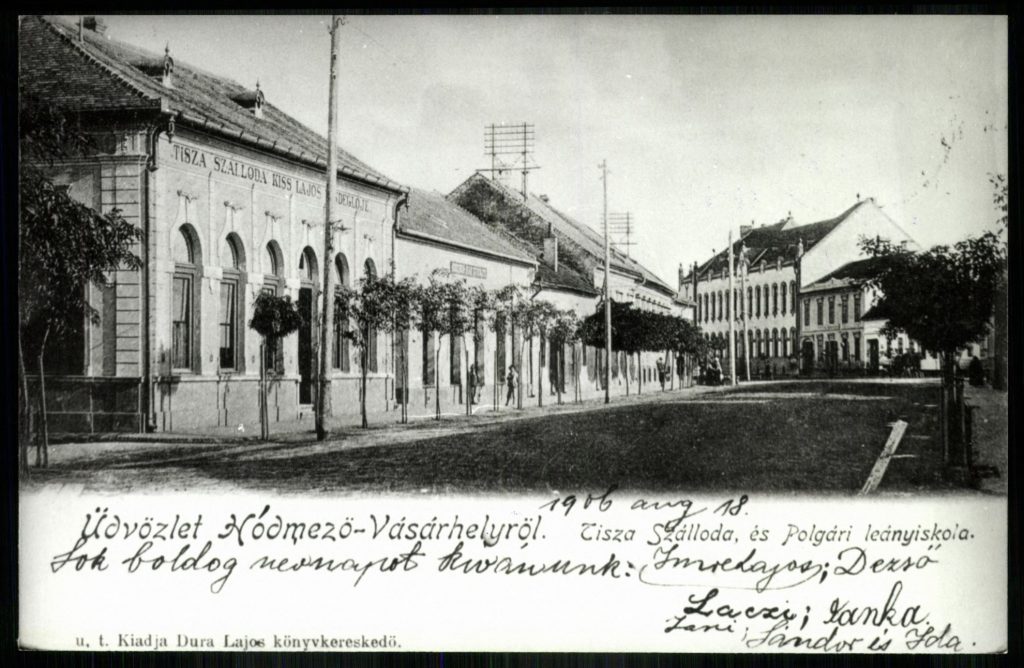 TISZA SZÁLLODA KISS LAJOS
1906 aug 18.
Üdvözlet Hódmező-Vásárhelyről.
Tisza Szálloda, és Polgári leányiskola.
Sok boldog nevnapot kivánunk: Imre Lajos; Dezső
Laczi; Ianka
Jani; Sándor és Ida.
u, t. Kiadja Dura Lajos könyvkereskedő.